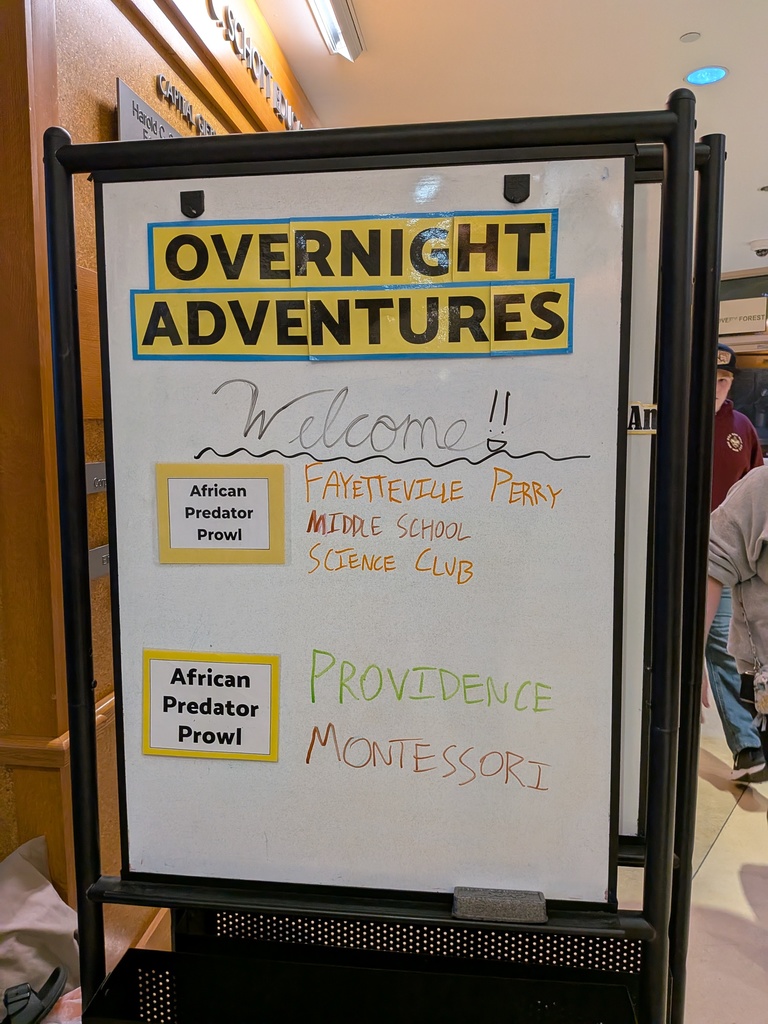 C. SCHOTT
CAPITAL
Harold C.
OVERNIGHT
ADVENTURES
Welcome!!
African
Predator
Prowl
FAYETTEVILLE PERRY
MIDDLE SCHOOL
SCIENCE CLUB
African
Predator
Prowl
PROVIDENCE
MONTESSORI
An
FOREST